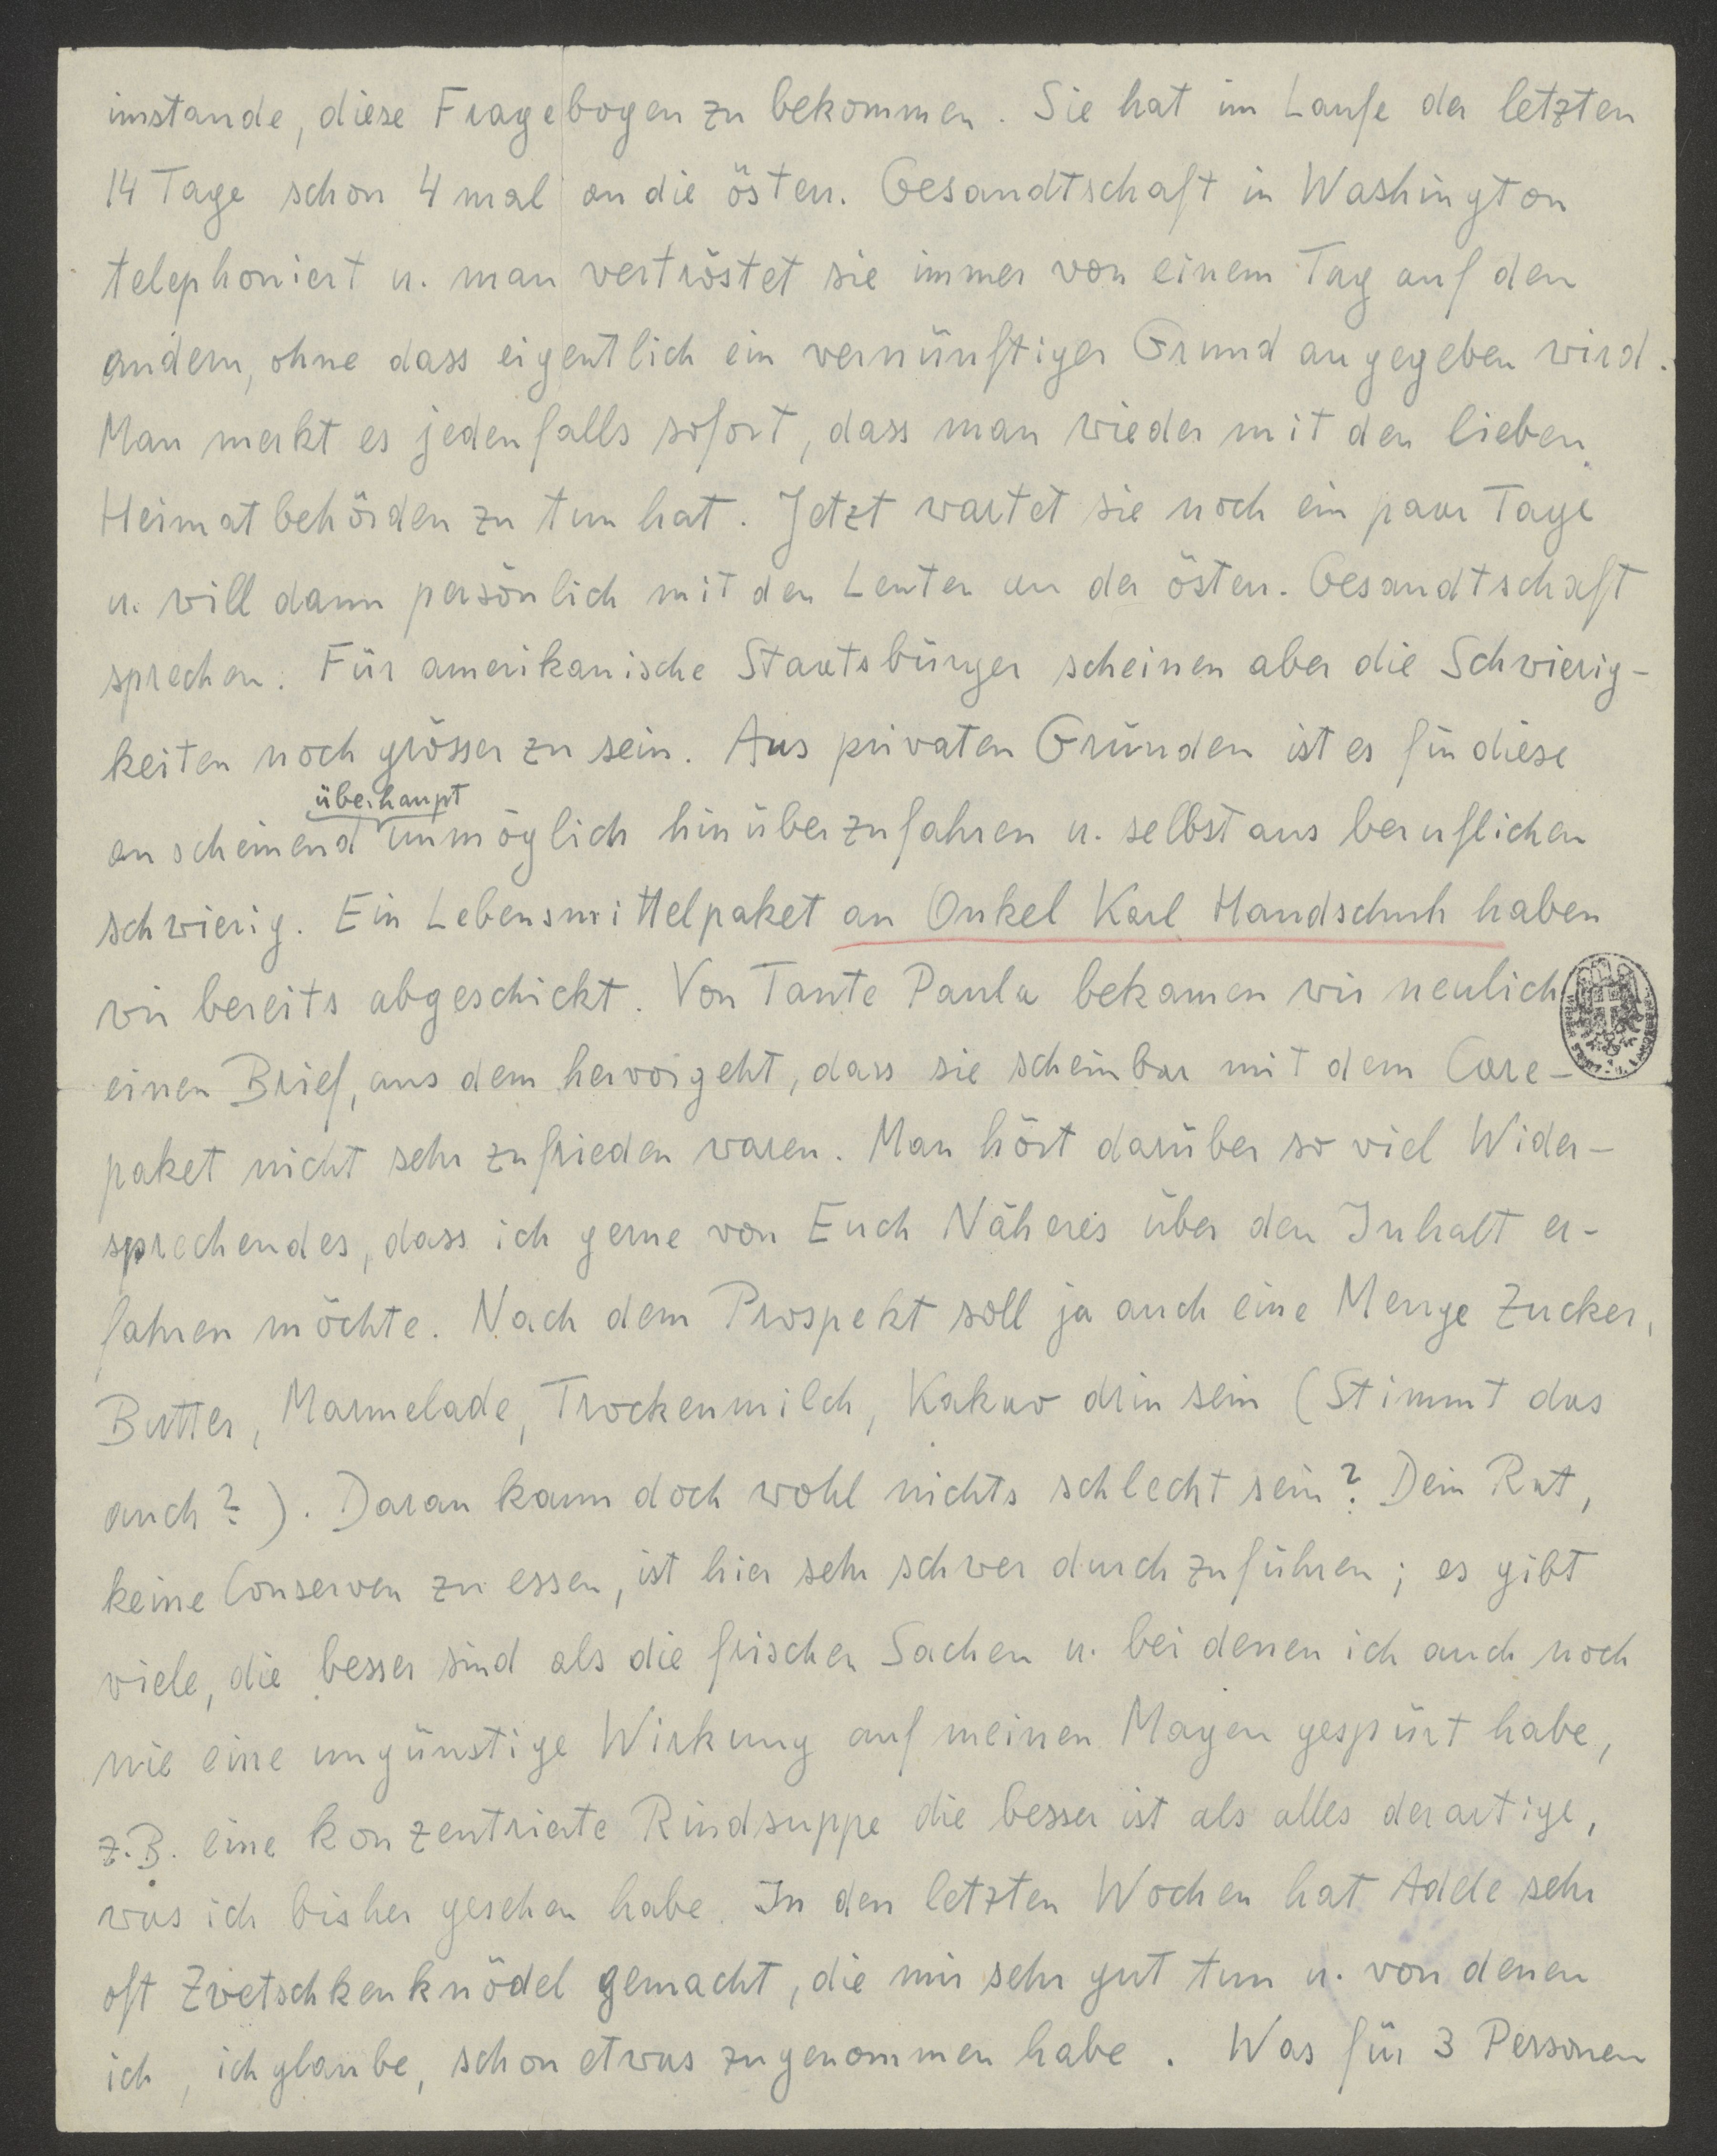 imstande, diese Fragebogen zu bekommen. Sie hat im Laufe der letzten
14 Tage schon 4 mal an die österr. Gesandtschaft in Washington
telephoniert u. man vertröstet sie immer von einem Tag auf den
andern, ohne dass eigentlich ein vernünftiger Grund angegeben wird.
Man merkt es jedenfalls sofort, dass man wieder mit den lieben
Heimatbehörden zu tun hat. Jetzt wartet sie noch ein paar Tage
u. will dann persönlich mit den Leuten an der österr. Gesandtschaft
sprechen. Für amerikanische Staatsbürger scheinen aber die Schwierig-
keiten noch grösser zu sein. Aus privaten Gründen ist es für diese
anscheinend überhaupt unmöglich hinüberzufahren u. selbst aus beruflichen
schwierig. Ein Lebensmittelpaket an Onkel Karl Handschuh haben
wir bereits abgeschickt. Von Tante Paula bekamen wir neulich
einen Brief, aus dem hervorgeht, dass sie scheinbar mit dem Care-
paket nicht sehr zufrieden waren. Man hört darüber so viel Wider-
sprechendes, dass ich gerne von Euch Näheres über den Inhalt er-
fahren möchte. Nach dem Prospekt soll ja auch eine Menge Zucker,
Butter, Marmelade, Trockenmilch, Kakao drin sein (Stimmt das
auch?). Daran kann doch wohl nichts schlecht sein? Dein Rat,
keine Conserven zu essen, ist hier sehr schwer durchzuführen; es gibt
viele, die besser sind als die frischen Sachen u. bei denen ich auch noch
nie eine ungünstige Wirkung auf meinen Magen gespürt habe,
z.B. eine konzentrierte Rindsuppe die besser ist als alles derartige,
was ich bisher gesehen habe. In den letzten Wochen hat Adele sehr
oft Zwetschkenknödel gemacht, die mir sehr gut tun u. von denen
ich, ich glaube, schon etwas zugenommen habe. Was für 3 Personen